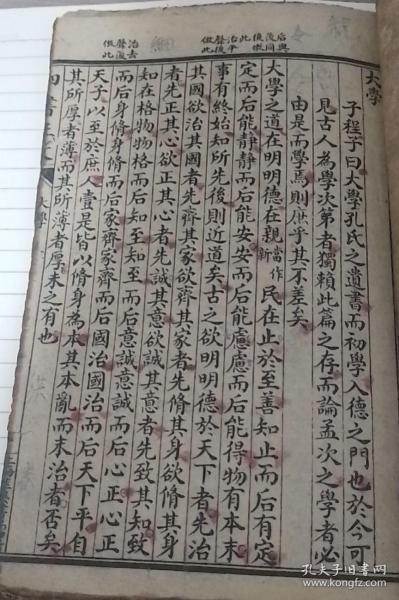 后與
後同
後倣
此
治平
聲後
倣此
治去
聲後
倣此
大學
子程子曰大學孔氏之遺書而初學入德之門也於今可
見古人為學次第者獨賴此篇之存而論孟次之學者必
由是而學焉則庶乎其不差矣
大學之道在明明德在親當作新民在止於至善知止而后有定
定而后能靜靜而后能安安而后能慮慮而后能得物有本末
事有終始知所先後則近道矣古之欲明明德於天下者先治
其國欲治其國者先齊其家欲齊其家者先脩其身欲脩其身
者先正其心欲正其心者先誠其意欲誠其意者先致其知致
知在格物物格而后知至知至而后意誠意誠而后心正心正
而后身脩身脩而后家齊家齊而后國治國治而后天下平自
天子以至於庶人壹是皆以脩身為本其本亂而末治者否矣
其所厚者薄而其所薄者厚未之有也
大學
孔夫子旧书网
www.kongfz.com